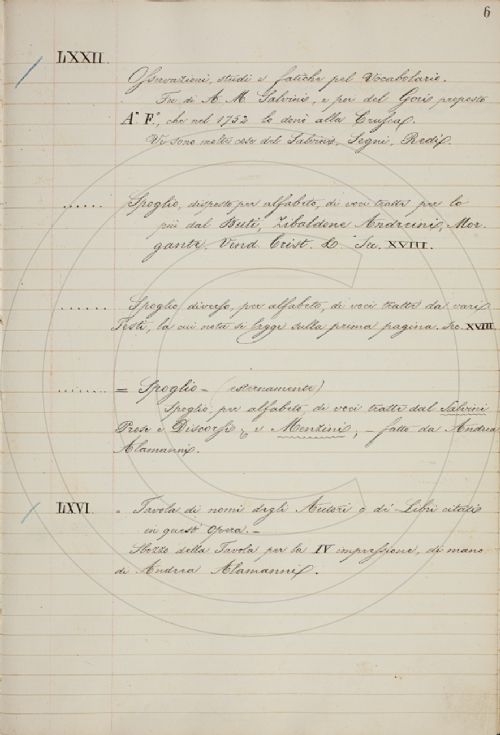 6
LXXII.
Osservazioni, studi e fatiche pel Vocabolario.
Fu di A. M. Salvini, e poi del Gori proposto
A. F., che nel 1752 lo donò alla Crusca.
Vi sono molte cose del Salvini, Segni, Redi.
...... Spoglio, disposto per alfabeto, di voci tratte per lo
più dal Buti, Zibaldone Andreini, Mor-
gante, Vend. Crist. Sec. XVIII.
....... Spoglio diverso, per alfabeto, di voci tratte da vari
Testi, la cui nota si legge sulla prima pagina. Sec. XVIII
........ = Spoglio = (esternamente)
Spoglio, per alfabeto, di voci tratte dal Salvini
Prose e Discorsi, e Menzini, – fatto da Andrea
Alamanni.
LXVI. = Tavola di nomi degli Autori o di Libri citati
in quest' Opera. =
Sbozzo della Tavola per la IV impressione, di mano
di Andrea Alamanni.